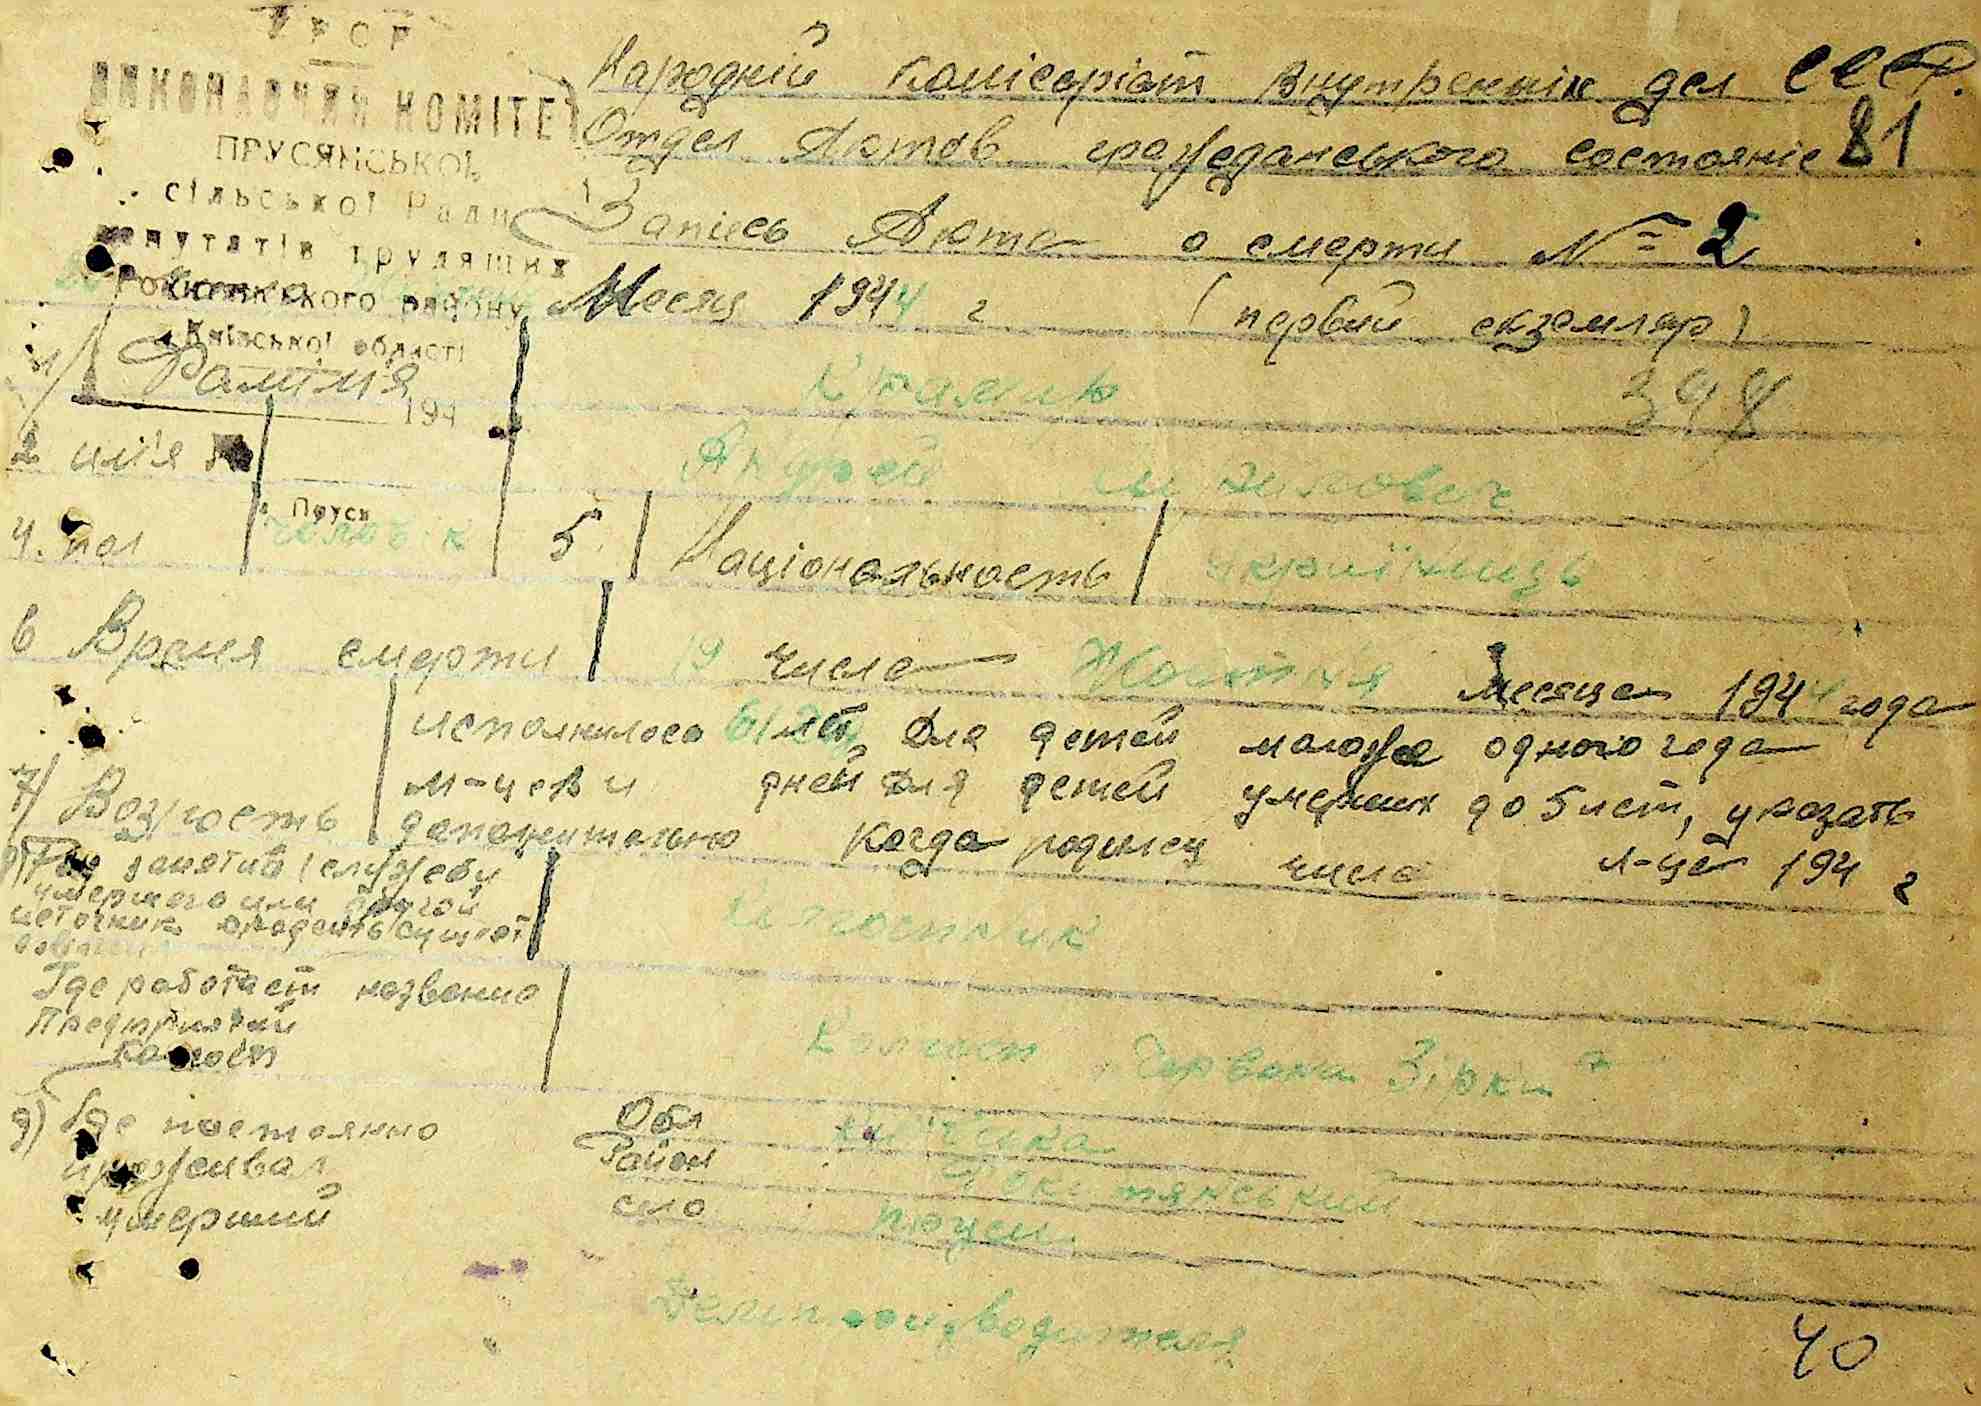 УРСР
ВИКОНАВЧИЙ КОМІТЕТ
ПРУСЯНСЬКОЇ
сільської Ради
депутатів трудящих
Рокитянського району
Київської області
194
Пруси
Народній комісаріат внутренніх дел СССР.
Отдел Актов гражеданського состояніє 81
Запись Акта о смерти № 2
Месяц 1944 г (первий екземляр)
1/ Фаміля 398
2 им'я Андрей
4. пол чоловік 5 Національность українець
6 Время смерти 19 числа Жовтня месяца 1944 года
исполнилось 61 лет, Для детей моложе одного года
7/ Возрость м-цев и дней для детей умерших до 5 лет, указать
допольнительно когда родилец числа м-ца 194 г
8) Род занятив (службу
умершого или другой
источник
Где работаєт названіє
Предприятий
Колгосп „Червона Зірка"
9) Где постоянно Обл Київська
проживал Район Рокитянський
умерший село Пруси
Делопроизводитель
40